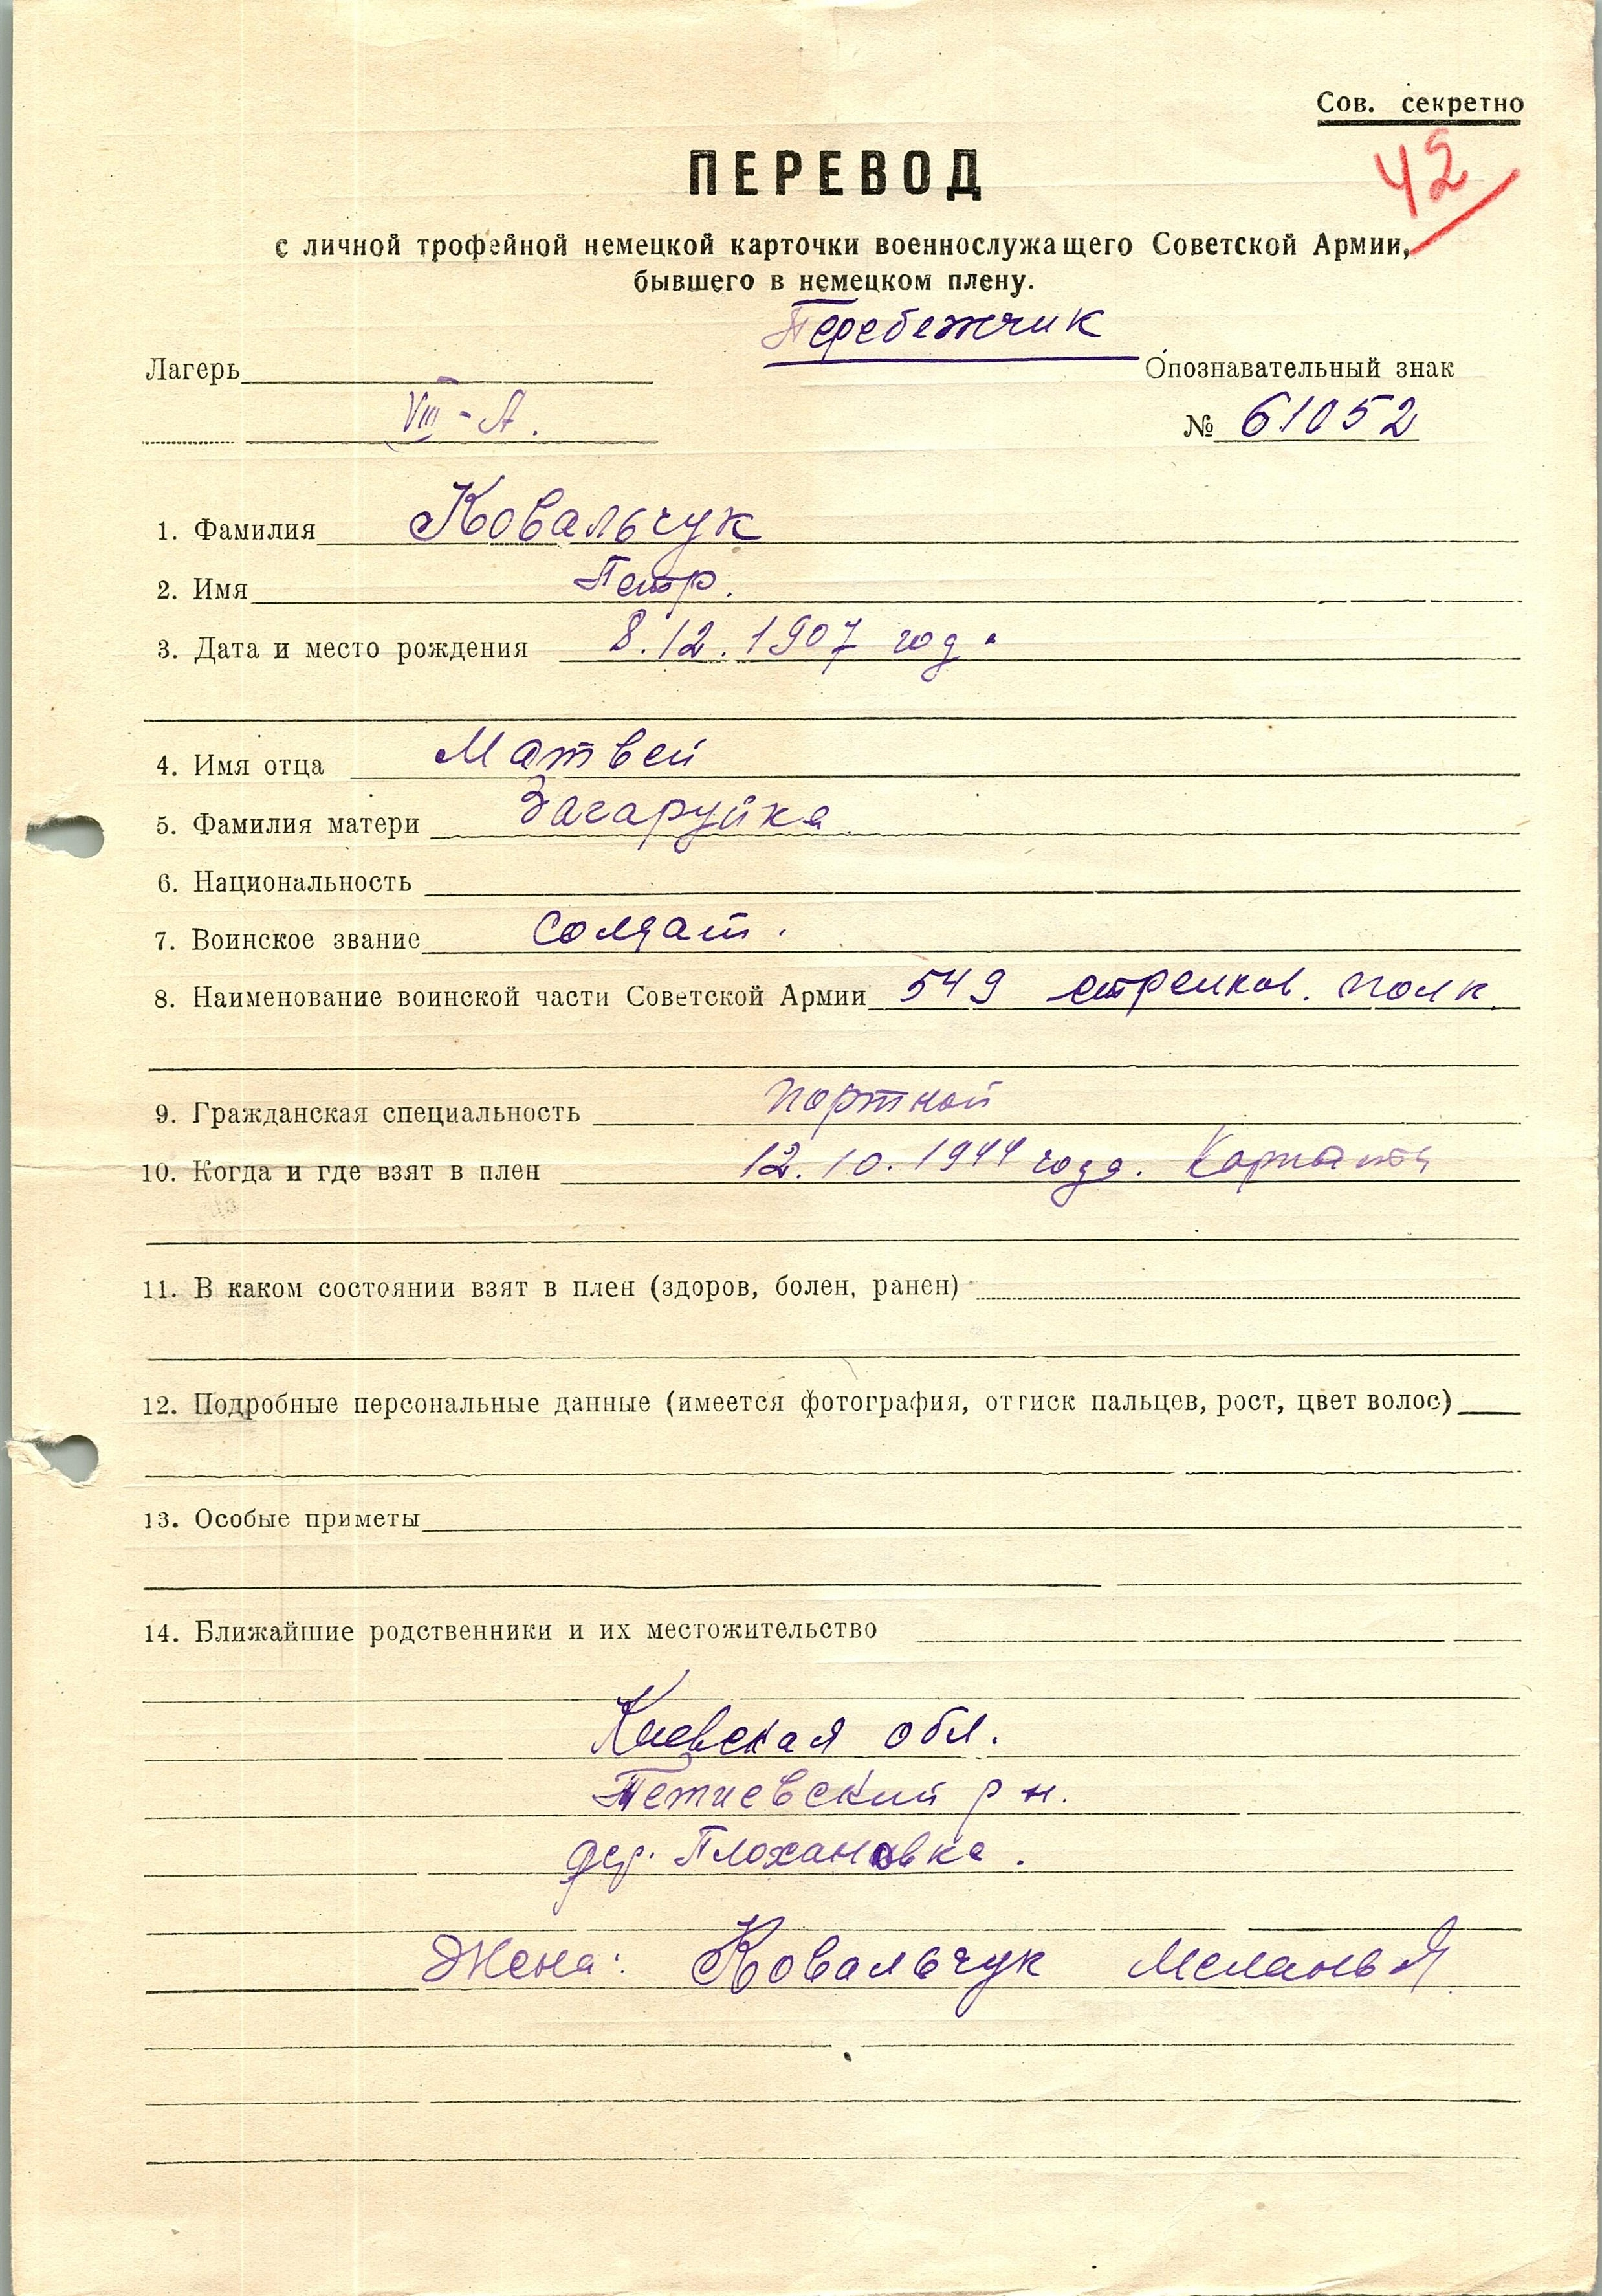 Сов. секретно
42
ПЕРЕВОД
с личной трофейной немецкой карточки военнослужащего Советской Армии,
бывшего в немецком плену.
Перебежчик
Лагерь Опознавательный знак
VIII - А. № 61052
1. Фамилия Ковальчук
2. Имя Петр.
3. Дата и место рождения 8.12.1907 год.
4. Имя отца Матвей
5. Фамилия матери Загаруйка.
6. Национальность
7. Воинское звание солдат.
8. Наименование воинской части Советской Армии 549 стрелков. полк.
9. Гражданская специальность портной
10. Когда и где взят в плен 12.10.1944 года. Карпаты
11. В каком состоянии взят в плен (здоров, болен, ранен)
12. Подробные персональные данные (имеется фотография, оттиск пальцев, рост, цвет волос)
13. Особые приметы
14. Ближайшие родственники и их местожительство
Киевская обл.
Тетиевский р н.
дер. Плохановка.
Жена: Ковальчук Меланья